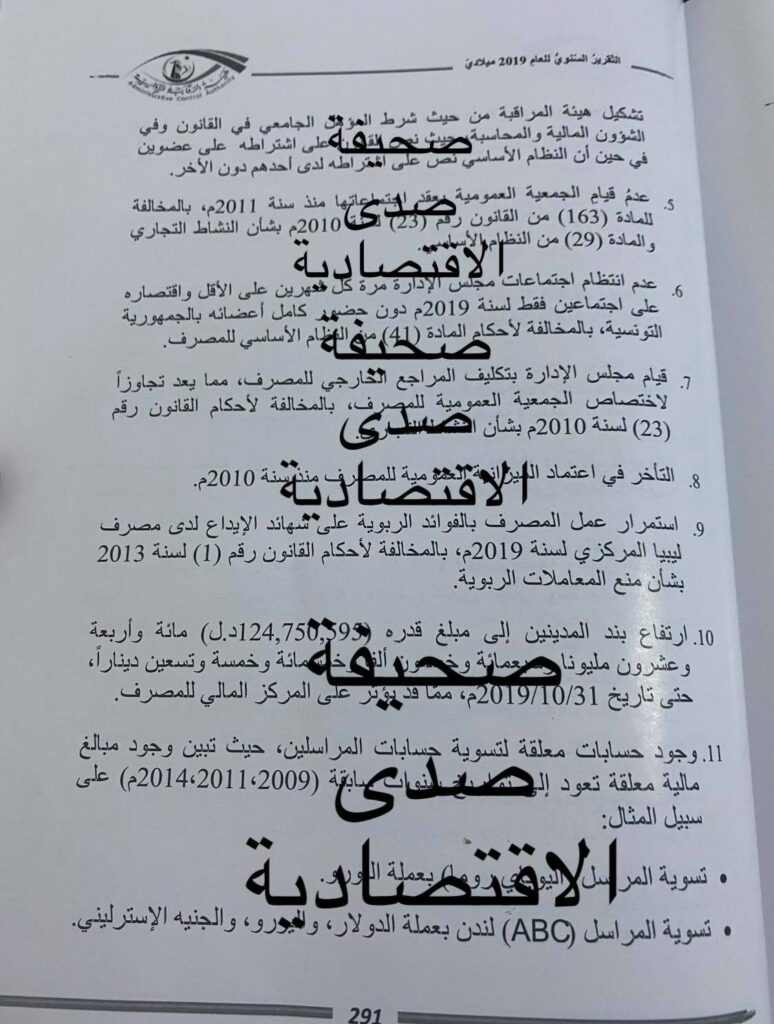 التقرير السنوي للعام 2019 ميلادي
Administrative Control Authority
تشكيل هيئة المراقبة من حيث شرط المؤهل الجامعي في القانون وفي
الشؤون المالية والمحاسبية، حيث نص القانون على اشتراطه على عضوين
في حين أن النظام الأساسي نص على اشتراطه لدى أحدهم دون الأخر.
5. عدم قيام الجمعية العمومية بعقد اجتماعاتها منذ سنة 2011م، بالمخالفة
للمادة (163) من القانون رقم (23) لسنة 2010م بشأن النشاط التجاري
والمادة (29) من النظام الأساسي.
6. عدم انتظام اجتماعات مجلس الإدارة مرة كل شهرين على الأقل واقتصاره
على اجتماعين فقط لسنة 2019م دون حضور كامل أعضائه بالجمهورية
التونسية، بالمخالفة لأحكام المادة (41) من النظام الأساسي للمصرف.
7. قيام مجلس الإدارة بتكليف المراجع الخارجي للمصرف، مما يعد تجاوزاً
لاختصاص الجمعية العمومية للمصرف، بالمخالفة لأحكام القانون رقم
(23) لسنة 2010م بشأن النشاط التجاري.
8. التأخر في اعتماد الميزانية العمومية للمصرف منذ سنة 2010م.
9. استمرار عمل المصرف بالفوائد الربوية على شهائد الإيداع لدى مصرف
ليبيا المركزي لسنة 2019م، بالمخالفة لأحكام القانون رقم (1) لسنة 2013
بشأن منع المعاملات الربوية.
10. ارتفاع بند المدينين إلى مبلغ قدره (124,750,595د.ل) مائة وأربعة
وعشرون مليونا وسبعمائة وخمسون ألفا وخمسمائة وخمسة وتسعين ديناراً،
حتى تاريخ 2019/10/31م، مما قد يؤثر على المركز المالي للمصرف.
11. وجود حسابات معلقة لتسوية حسابات المراسلين، حيث تبين وجود مبالغ
مالية معلقة تعود إلى سنوات سابقة (2009،2011،2014م) على
سبيل المثال:
• تسوية المراسل (اليوباي روما) بعملة اليورو.
• تسوية المراسل (ABC) لندن بعملة الدولار، واليورو، والجنيه الإسترليني.
291
صحيفة
صدى
الاقتصادية
صحيفة
صدى
الاقتصادية
صحيفة
صدى
الاقتصادية